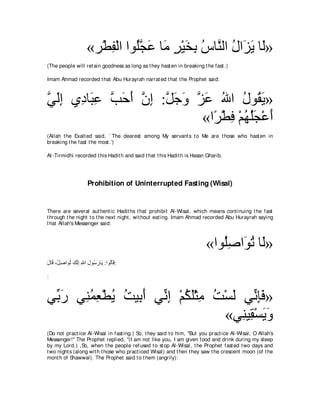 «لَا يَزَالُ النَّاسُ بِخَيْرٍ مَا عَجَّلُوا الْفِطْرَ»
(The people will retain goodness as long as they hasten in breaking the fast.)
Imam Ahmad recorded that Abu Hurayrah narrated that the Prophet said:
«يَقُولُ اللهُ عَزَّ وَجَلَّ: إِنَّ أَحَبَّ عِبَادِي إِلَيَّ
أَعْجَلُهُمْ فِطْرًا»
(Allah the Exalted said, `The dearest among My servants to Me are those who hasten in
breaking the fast the most.')
At-Tirmidhi recorded this Hadith and said that this Hadith is Hasan Gharib.
Prohibition of Uninterrupted Fasting (Wisal)
There are several authentic Hadiths that prohibit Al-Wisal, which means continuing the fast
through the night to the next night, without eating. Imam Ahmad recorded Abu Hurayrah saying
that Allah's Messenger said:
«لَا تُوَاصِلُوا»
قالوا: يارسول الله إنك تواصل، قال:
:
«فَإِنِّي لَسْتُ مِثْلَكُمْ إِنِّي أَبِيتُ يُطْعِمُنِي رَبِّي
وَيَسْقِينِي»
(Do not practice Al-Wisal in fasting.) So, they said to him, "But you practice Al-Wisal, O Allah's
Messenger!'' The Prophet replied, "(I am not like you, I am given food and drink during my sleep
by my Lord.) ,So, when the people refused to stop Al-Wisal, the Prophet fasted two days and
two nights (along with those who practiced Wisal) and then they saw the crescent moon (of the
month of Shawwal). The Prophet said to them (angrily):